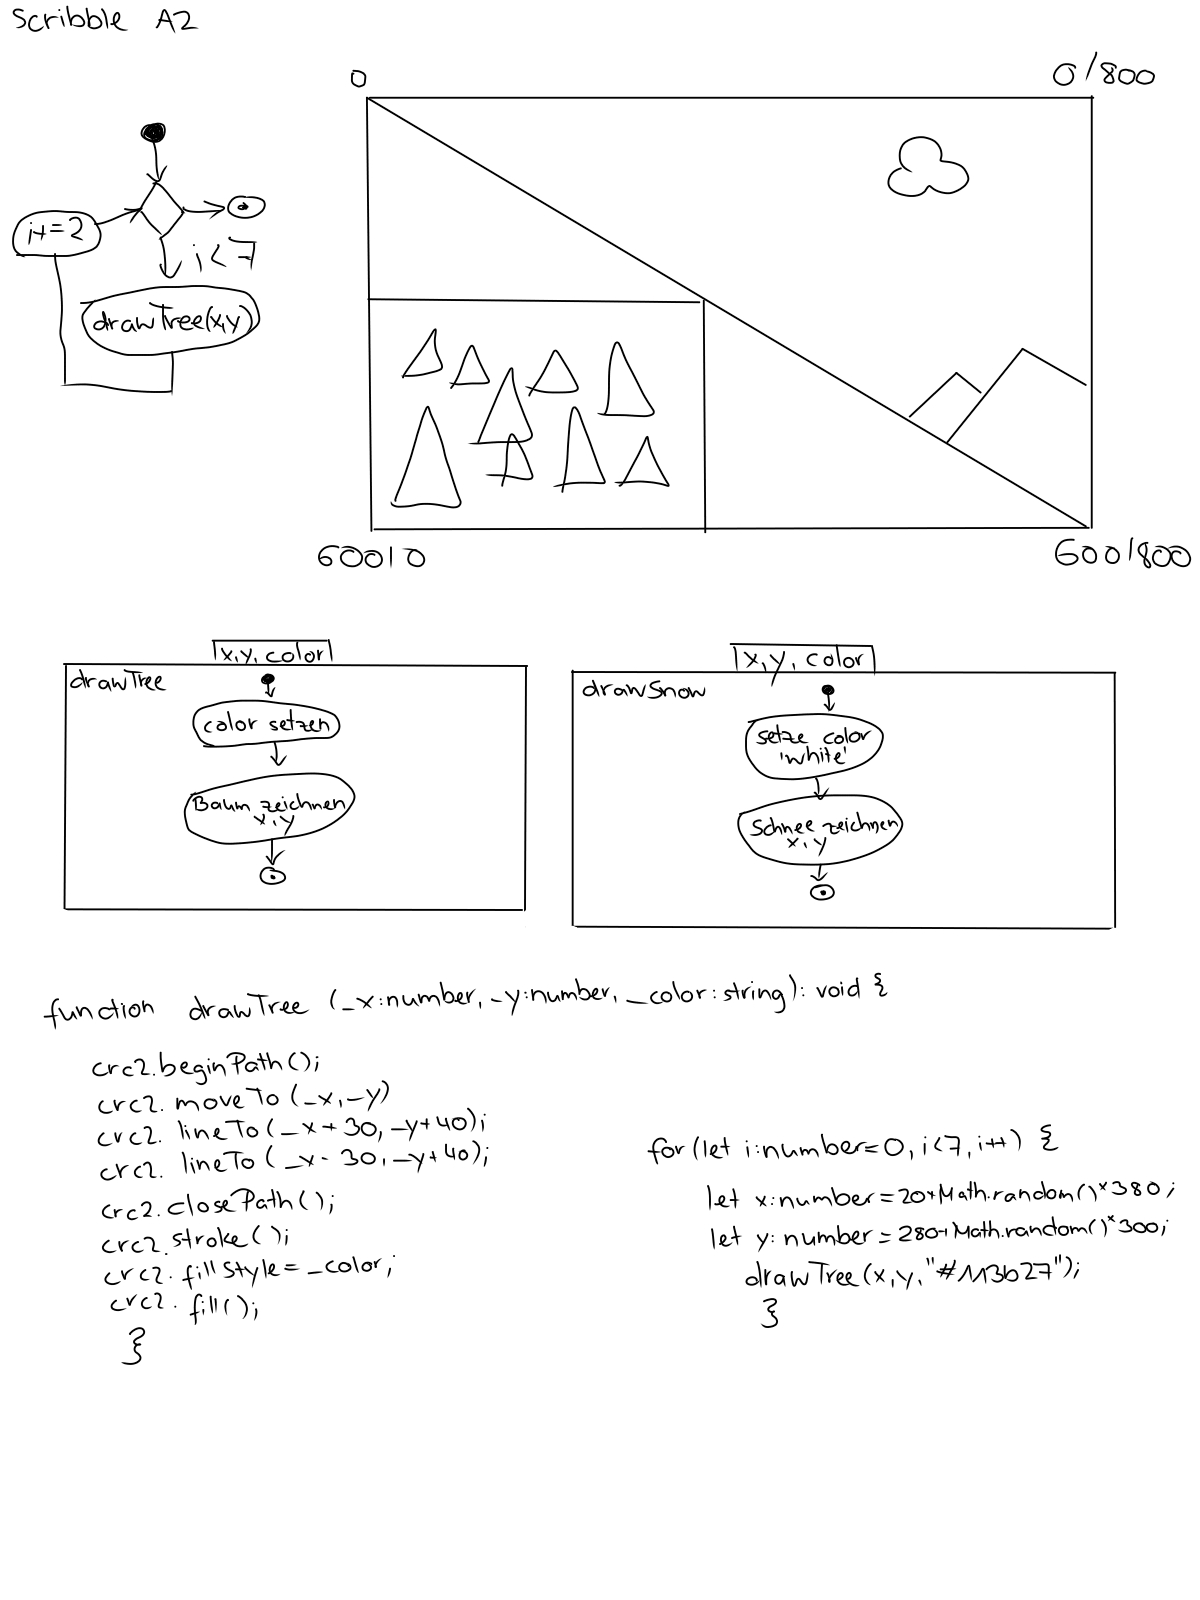 Scribble A2
0
0/800
i+=2
i<7
drawTree(x,y)
600/0
600/800
x,y, color
drawTree
color setzen
Baum zeichnen
x,y
x,y, color
drawSnow
setze color
'white'
Schnee zeichnen
x,y
function drawTree (_x:number, _y:number, _color:string): void {
crc2.beginPath();
crc2.moveTo(_x,_y)
crc2.lineTo(_x+30, _y+40);
crc2.lineTo(_x-30, _y+40);
crc2.closePath();
crc2.stroke();
crc2.fillStyle=_color;
crc2.fill();
}
for(let i:number=0, i<7, i++) {
let x:number=20+Math.random()*380;
let y:number=280+Math.random()*300;
drawTree(x,y,"#113b27");
}